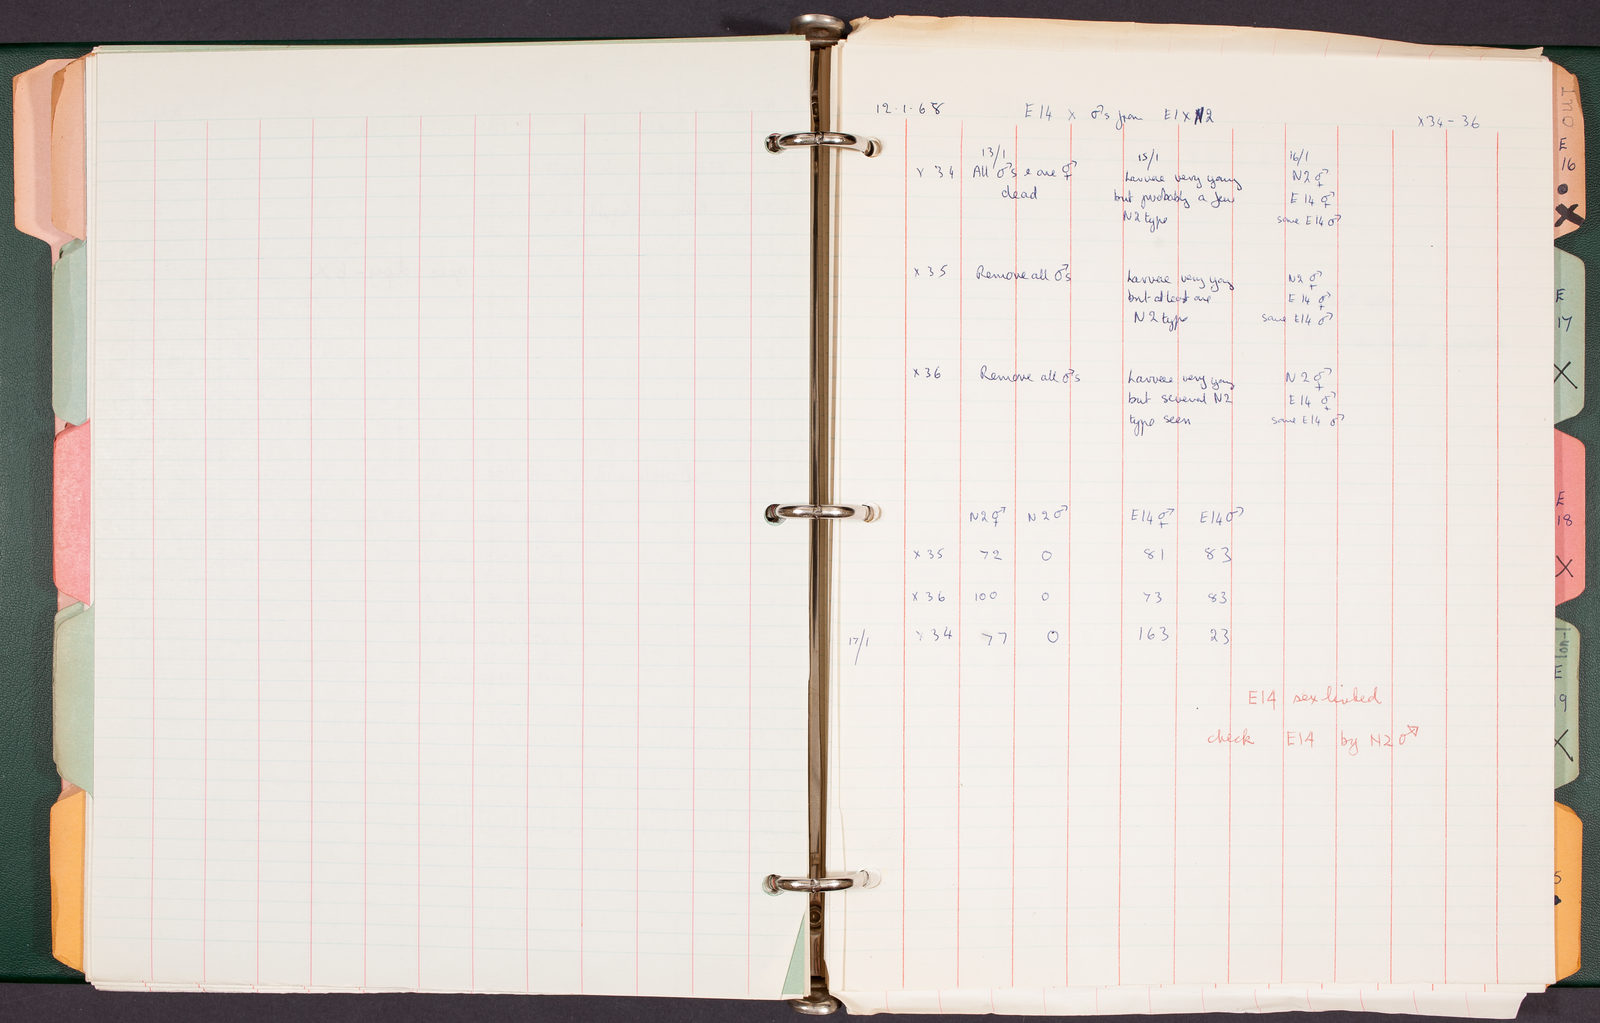 12.1.68 E14 x ♂s from E1 x N2 x34-36
13/1 15/1 16/1
x34 All ♂s & one ⚥ Larvae very young N2 ⚥
dead but probably a few E14 ⚥
N2 type some E14 ♂
x35 Remove all ♂s Larvae very young N2 ⚥
but at least one E14 ⚥
N2 type some E14 ♂
x36 Remove all ♂s Larvae very young N2 ⚥
but several N2 E14 ⚥
type seen some E14 ♂
N2⚥ N2♂ E14⚥ E14♂
x35 72 0 81 83
x36 100 0 73 83
17/1 x34 77 0 163 23
E14 sex linked
check E14 by N2 ♂
E
16
X
E
17
X
E
18
X
E
19
X
5